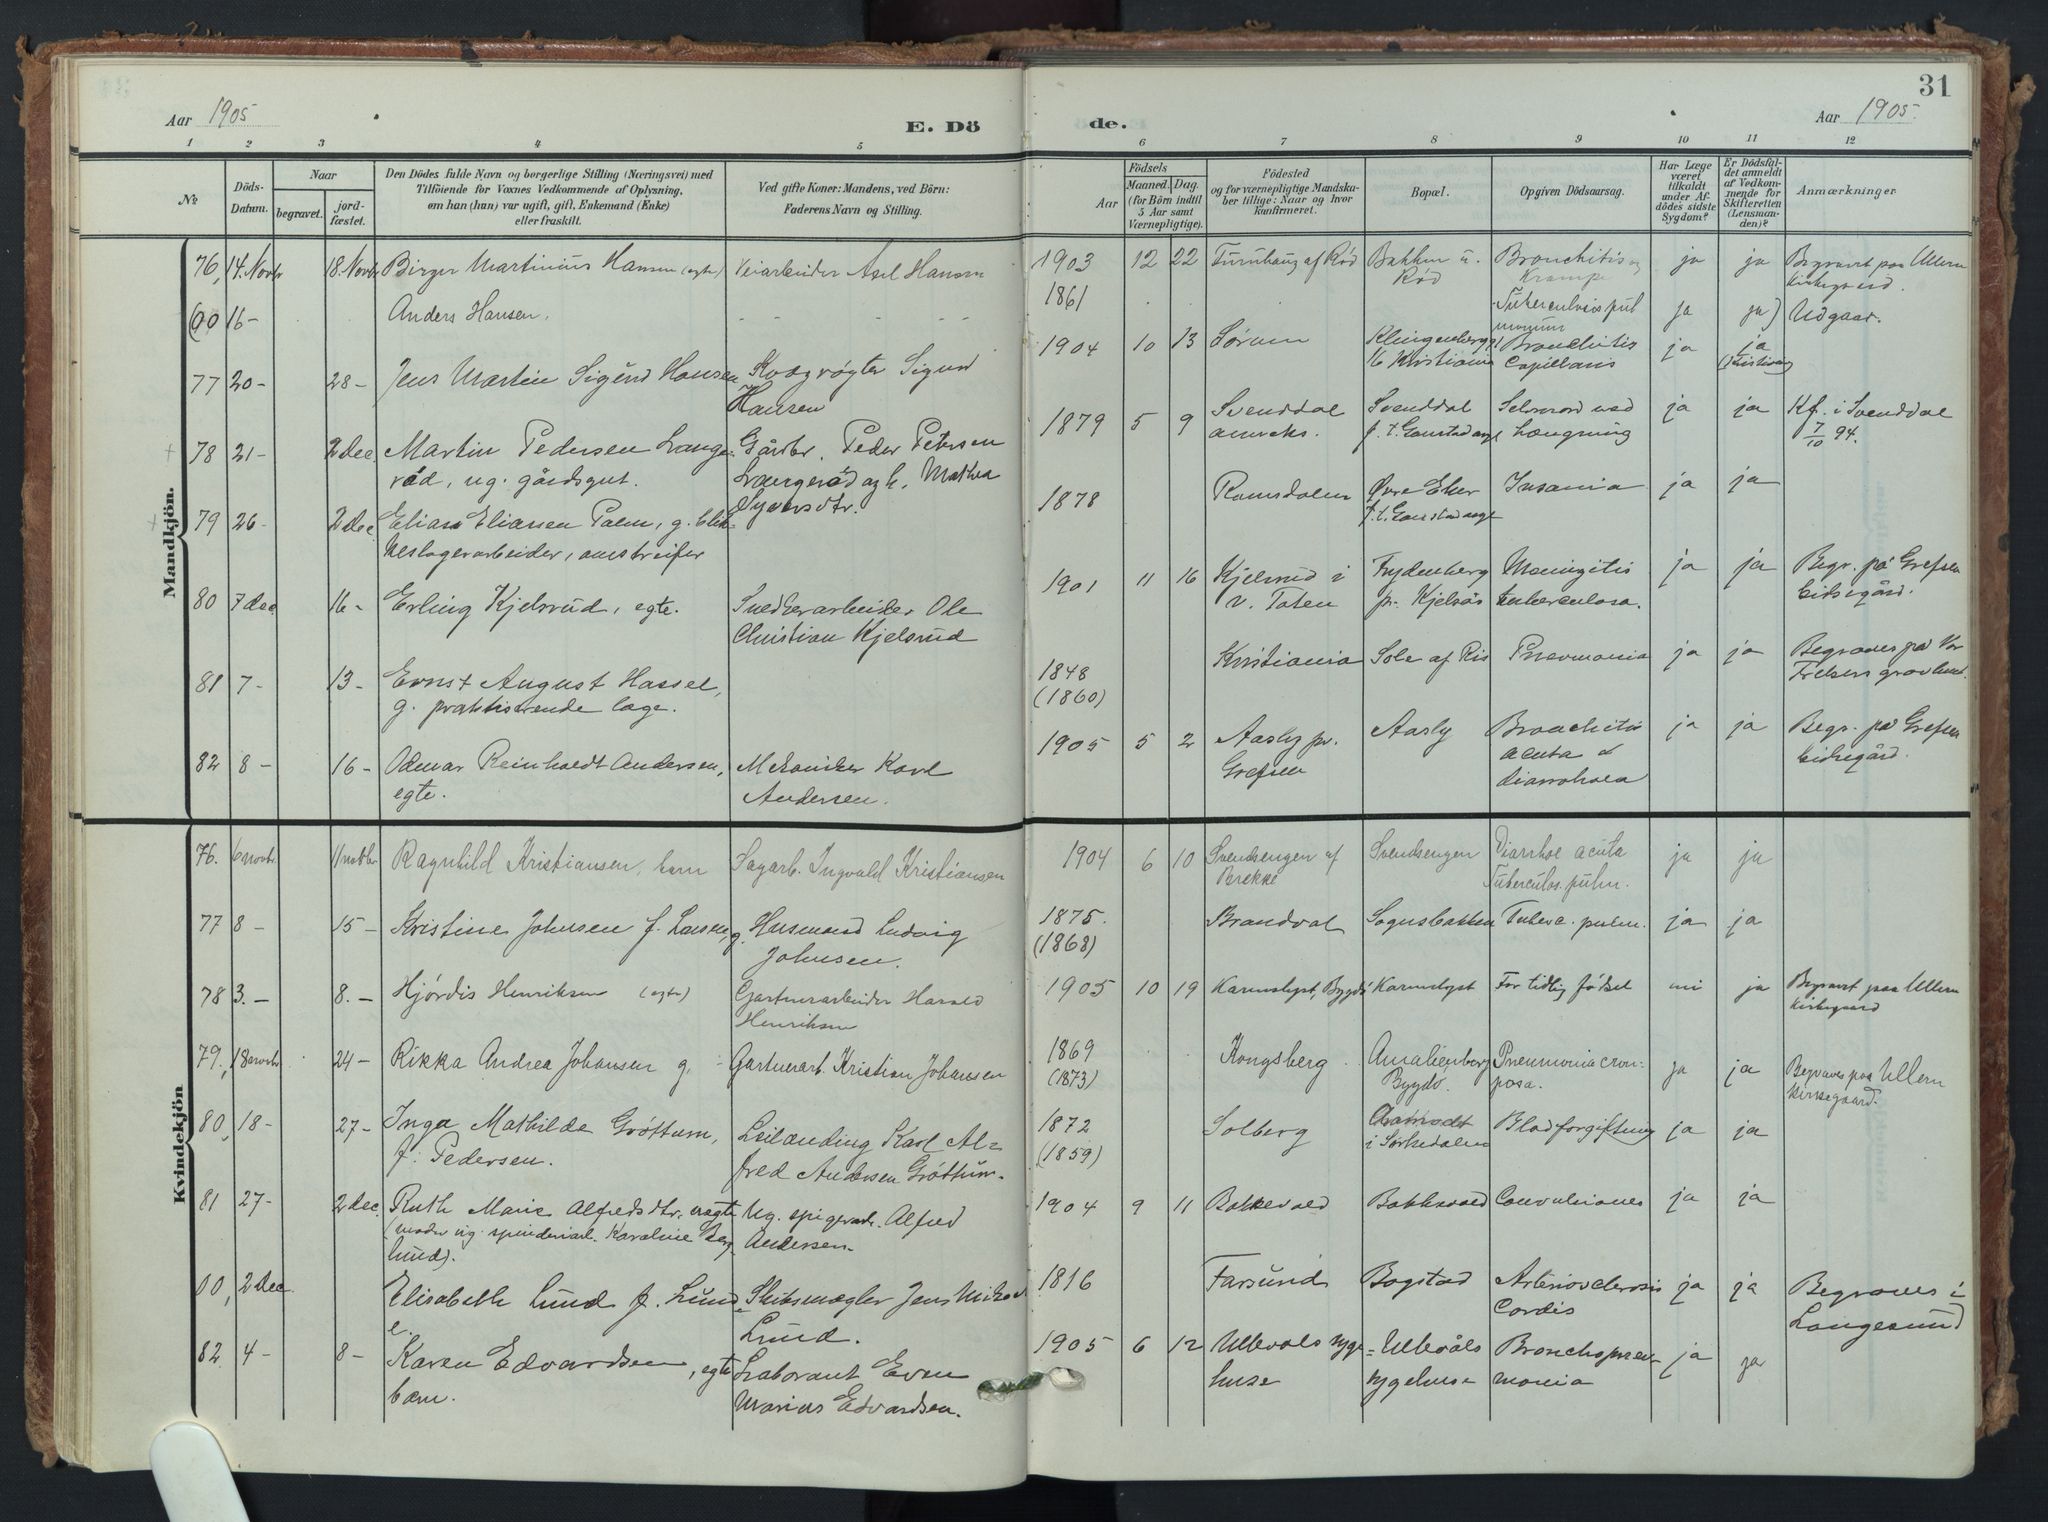 Aar 1905
E. Dö
1 2 3 4 5
№
Döds-
Datum.
Naar
begravet.
jord-
fæstet.
Den Dödes fulde Navn og borgerlige Stilling (Næringsvei) med
Tilföiende for Voxnes Vedkommende af Oplysning,
om han (hun) var ugift, gift, Enkemand (Enke)
eller fraskilt.
Ved gifte Koner: Mandens, ved Börn:
Faderens Navn og Stilling.
Mandkjön.
76, 14. Novbr 18. Novbr Birger Martinius Hansen (egte) Veiarbeider Axel Hansen
(00 16 - Anders Hansen.
77 20 - 28 - Jens Martin Sigurd Hansen Kvægrøgter Sigurd
Hansen
78 21 - 2 dec. Martin Pedersen Lange- Gårdbr. Peder Petersen
rød, ug. gårdsgut. Langerød og h. Mathea
Syversdtr.
79 26 - 2 dec Elias Eliasen Palm, g. blik-
keslagerarbeider, omstreifer
80 7 dec. 16 - Erling Kjelsrud, egte. Snedkerarbeider Ole
Christian Kjelsrud
81 7 - 13 - Ernst August Hassel,
g. praktiserende læge.
82 8 - 16 - Odmar Reinholdt Andersen, Mekaniker Karl
egte. Andersen.
Kvindekjön
76. 6 novbr. 11 novbr Ragnhild Kristiansen, barn Sagarb. Ingvald Kristiansen
77 8 - 15 - Kristine Johnsen f. Larsen, g. Husmand Ludvig
Johnsen.
78 3. - 8. - Hjørdis Henriksen (egte) Gartnerarbeider Harald
Henriksen
79, 18 novbr 24 - Rikka Andrea Johansen g. Gartnerarb. Kristian Johansen
80, 18 - 27 - Inga Mathilde Grøttum, Leilænding Karl Al-
f. Pedersen. fred Andersen Grøttum.
81 27 - 2 dec. Ruth Marie Alfredsdtr. uegte Ug. spigerarb. Alfred
(moder ug. spinderiarb. Karoline Berg- Andersen.
lund).
00, 2 dec. Elisabeth Lund f. Lund Skibsmægler Jens
e. Lund.
82. 4 - 8 - Karen Edvardsen, egte Laborant Even
barn. Marius Edvardsen.
31
de.
Aar 1905.
6 7 8 9 10 11 12
Aar
Födsels
Maaned. Dag.
(for Börn indtil
5 Aar samt
Værnepligtige).
Födested
og for værnepligtige Mandska-
ber tillige: Naar og hvor
konfirmeret.
Bopæl.
Opgiven Dödsaarsag.
Har Læge
været
tilkaldt
under Af-
dödes sidste
Sygdom?
Er Dödsfal-
det anmeldt
af Vedkom-
mende for
Skifteretten
(Lensman-
den)?
Anmærkninger
1903 12 22 Turnhaug af Rød Bakken u. Bronchitis og ja ja Begravet paa Ullern
Rød Krampe kirkegaard.
1861 Tuberculosis pul ja ja) Udgaar.
monum
1904 10 13 Sørum Klingenberggt Bronchitis ja ja
16 Kristiania Capillaris (Kristiania)
1879 5 9 Svenddal Svenddal Selvmord ved ja ja Kf. i Svenddal
anneks. p. t. Gaustad asyl hængning 7/10 94.
1878 Romsdalen Øvre Eker Insania ja ja
p. t. Gaustad asyl
1901 11 16 Kjelsrud i Frydenberg Meningitis ja ja Begr. på Grefsen
v. Toten pr. Kjelsås tuberculosa. kirkegård.
1848 Kristiania Sole af Ris Pneumonia ja ja Begraves på Vor
(1860) Frelsers gravlund.
1905 5 2 Aasly pr. Aasly Bronchitis ja ja Begr. på Grefsen
Grefsen acuta & kirkegård.
diarrohoea
1904 6 10 Svendsengen af Svendsengen Diarrhoe acuta ja ja
Brekke Tuberculos. pulm.
1875. Brandval Sognsbakken Tuberc. pulm. ja ja
(1868)
1905 10 19 Karenslyst, Bygdø Karenslyst For tidlig fødsel nei ja Begravet paa Ullern
kirkegaard
1869 Kongsberg Amalienberg Pneumonia crou- ja ja Begraves paa Ullern
(1873) Bygdø posa. kirkegaard.
1872 Solberg Blodforgiftning ja ja
(1859) i Sørkedalen
1904 9 11 Bakkevold Bakkevold Convulsiones ja ja
1816 Farsund Bogstad Arteriosclerosis ja ja Begraves i
Cordis Langesund)
1905 6 12 Ullevåls syge- Ullevåls Bronchopneu- ja ja
huse sygehuse monia